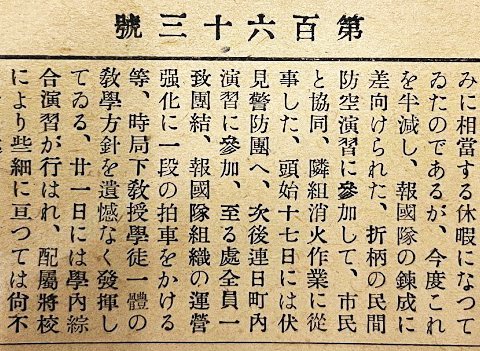 第百六十三號
みに相當する休暇になつて
ゐたのであるが、今度これ
を半減し、報國隊の鍊成に
差向けられた、折柄の民間
防空演習に參加して、市民
と協同、隣組消火作業に從
事した、頭始十七日には伏
見警防團へ、次後連日町內
演習に參加、至る處全員一
致團結、報國隊組織の運營
强化に一段の拍車をかける
等、時局下敎授學徒一體の
敎學方針を遺憾なく發揮し
てゐる、廿一日には學內綜
合演習が行はれ、配屬將校
により些細に亘つては尙不